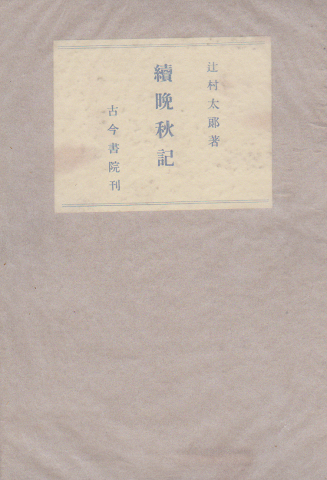 辻村太郎著
續晩秋記
古今書院刊